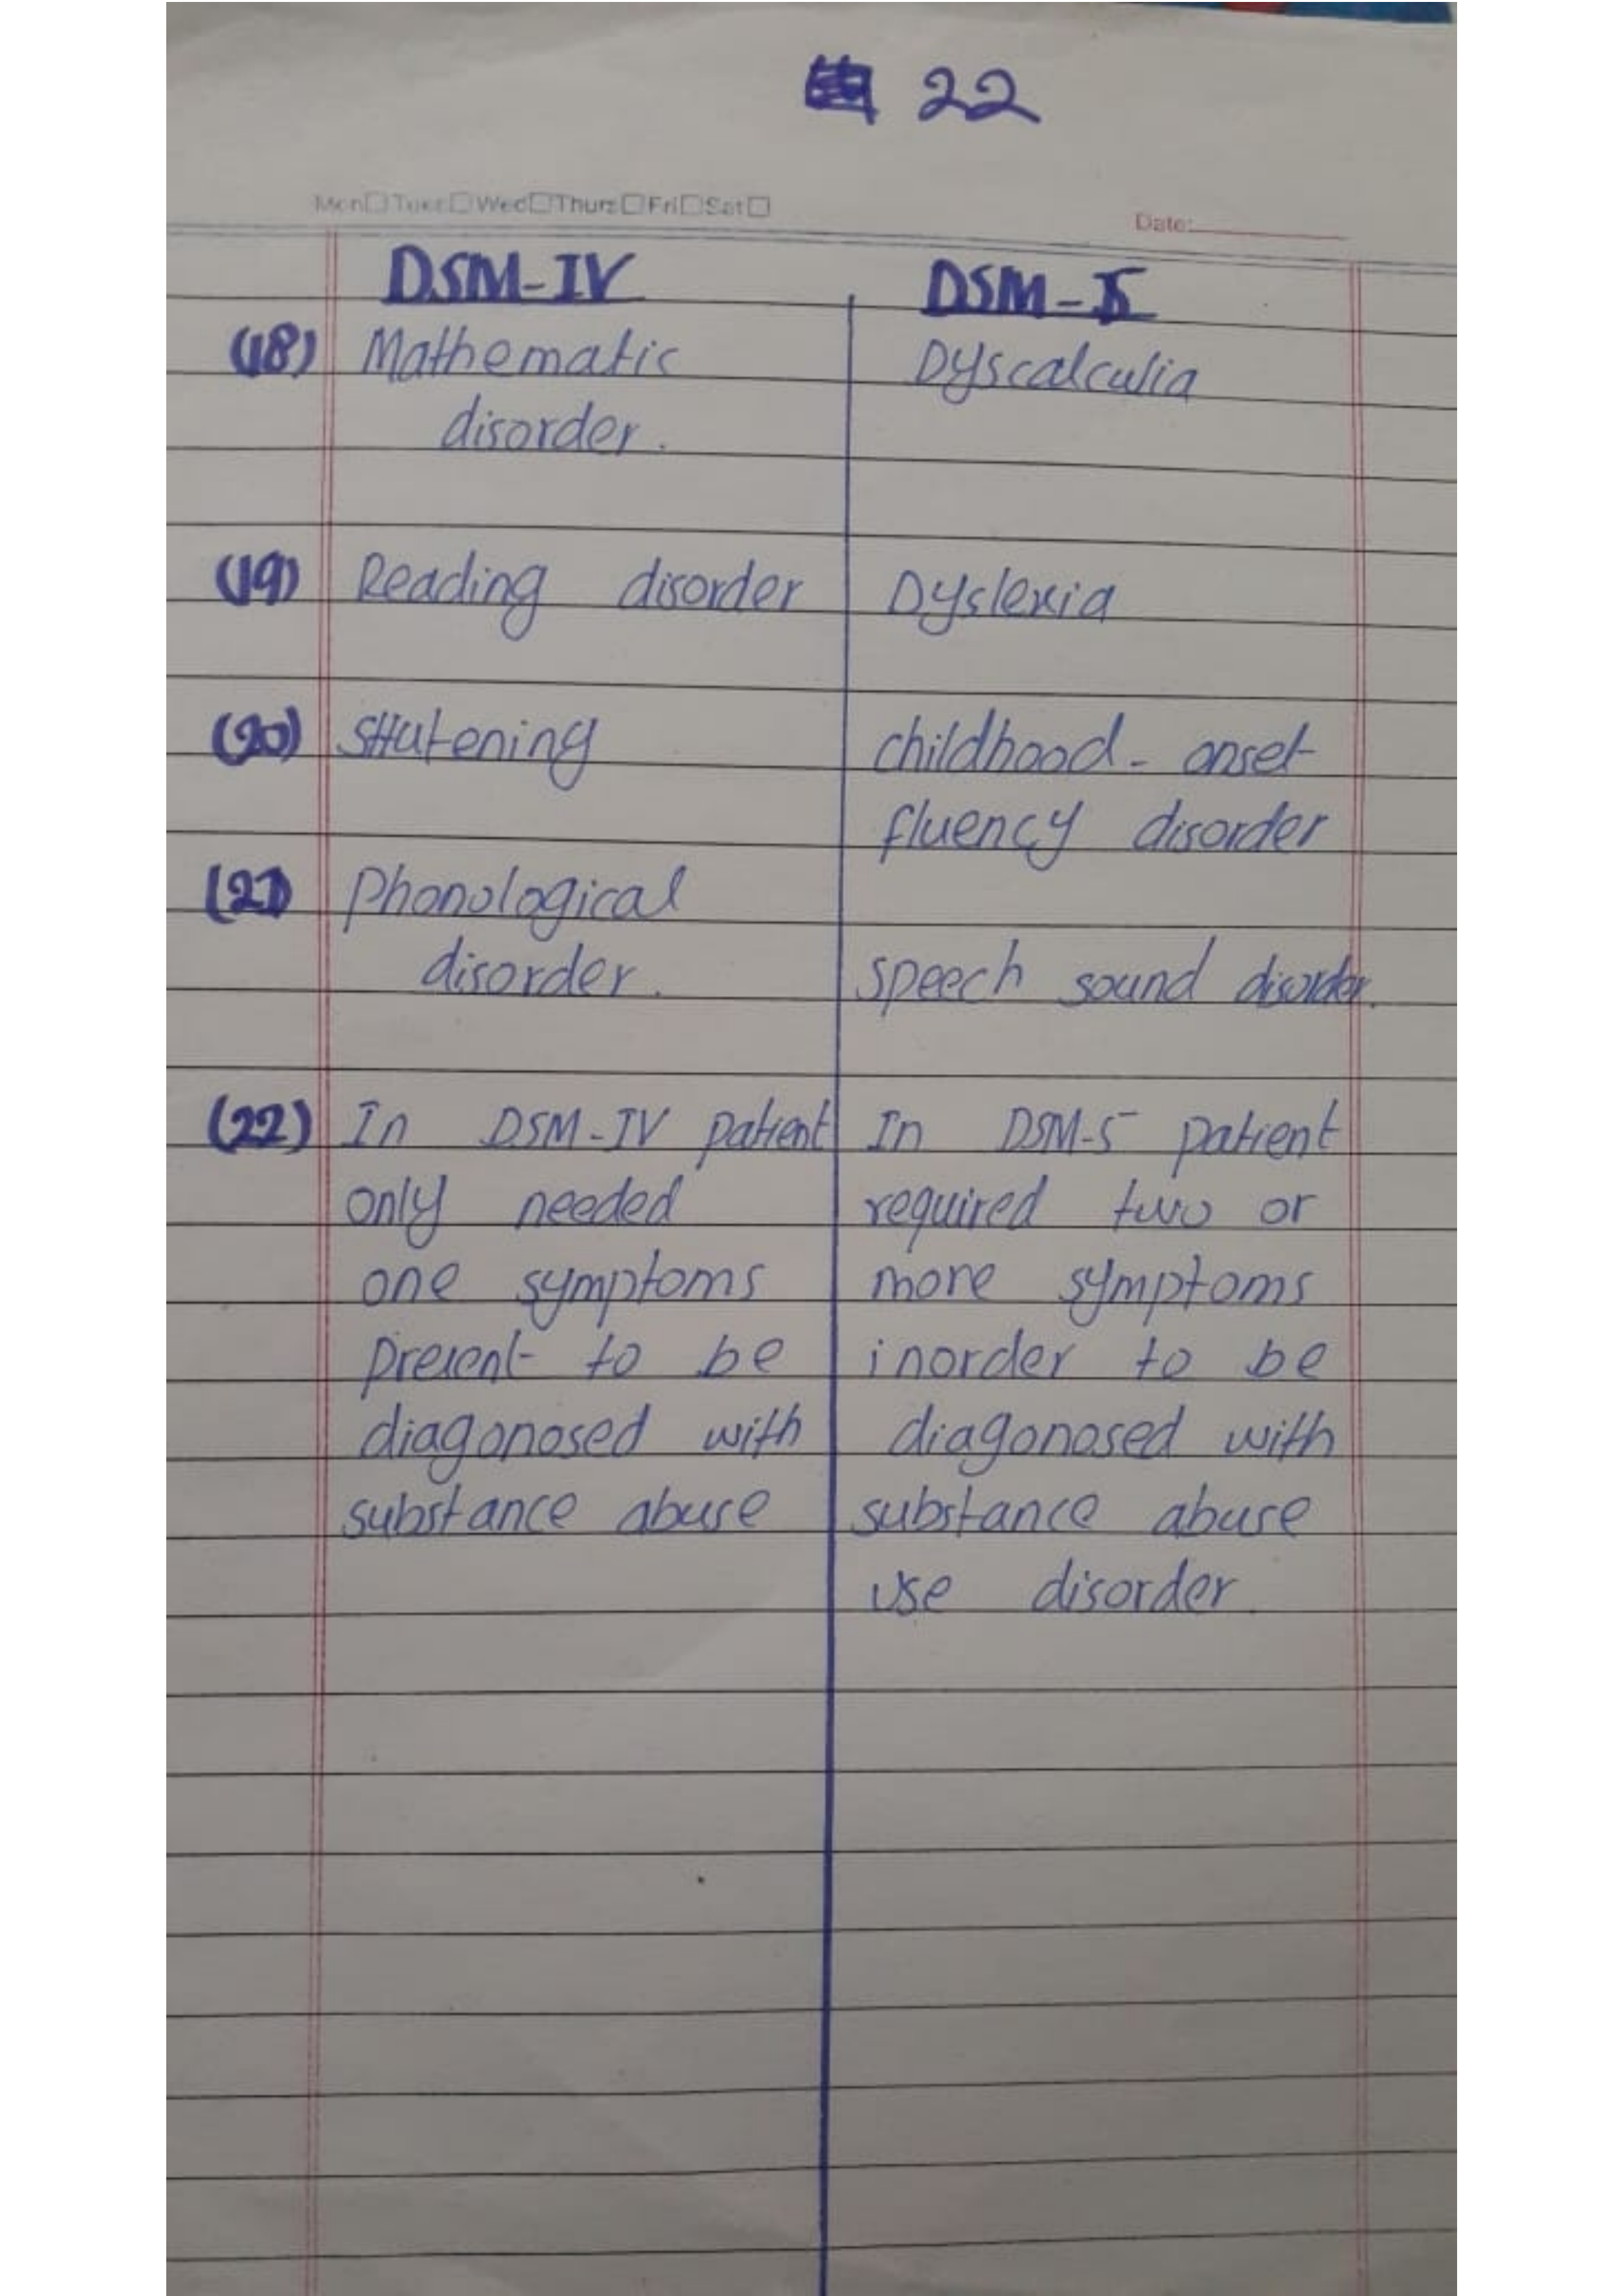 22
Mon Tues Wed Thurs Fri Sat
Date:
DSM-IV
DSM-5
(18) Mathematic
disorder.
Dyscalculia
(19) Reading disorder
Dyslexia
(20) Stutening
childhood - onset
fluency disorder
(21) Phonological
disorder.
speech sound disorder.
(22) In DSM-IV patient
only needed
one symptoms
present to be
diagonosed with
substance abuse
In DSM-5 patient
required two or
more symptoms
inorder to be
diagonosed with
substance abuse
use disorder.